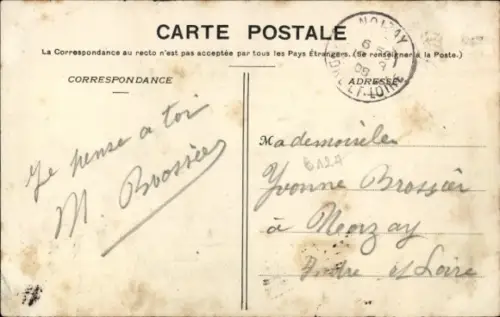 CARTE POSTALE
La Correspondance au recto n'est pas acceptée par tous les Pays Étrangers. (Se renseigner à la Poste.)
CORRESPONDANCE
ADRESSE
NOIZAY
INDRE-ET-LOIRE
Je pense a toi
M. Brossier
Mademoiselle
B127
Yvonne Brossier
à Noizay
Indre et Loire